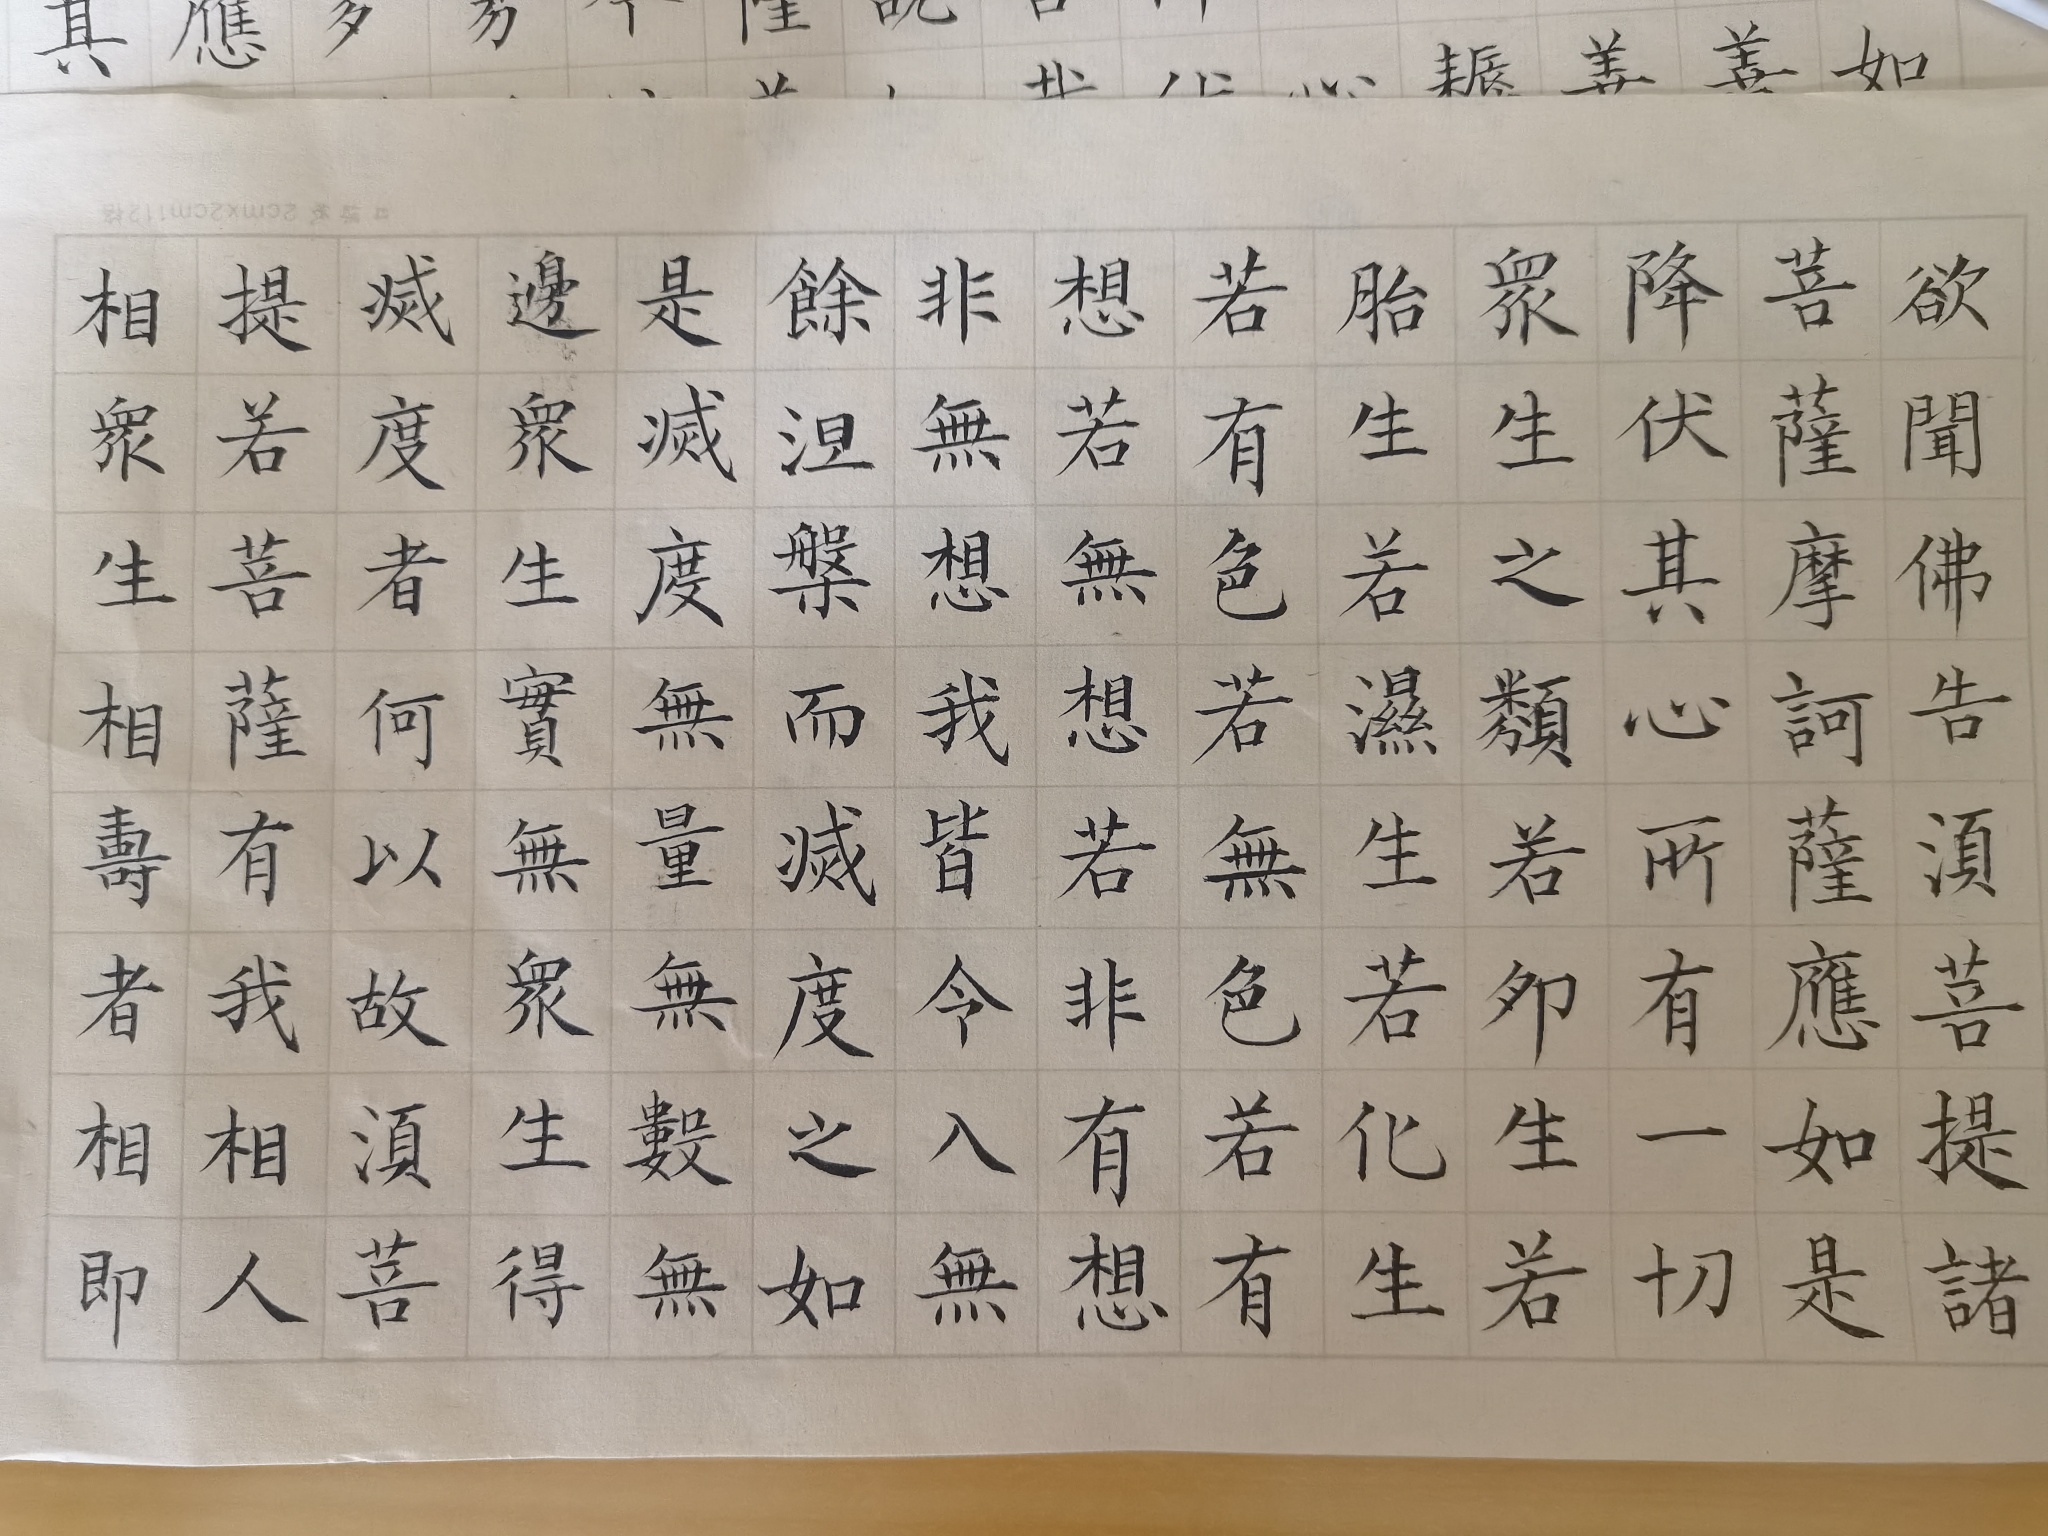 欲聞佛告須菩提諸
菩薩摩訶薩應如是
降伏其心所有一切
衆生之類若卵生若
胎生若濕生若化生
若有色若無色若有
想若無想若非有想
非無想我皆令入無
餘涅槃而滅度之如
是滅度無量無數無
邊衆生實無衆生得
滅度者何以故須菩
提若菩薩有我相人
相衆生相壽者相即
如
善
善
耨
應
其